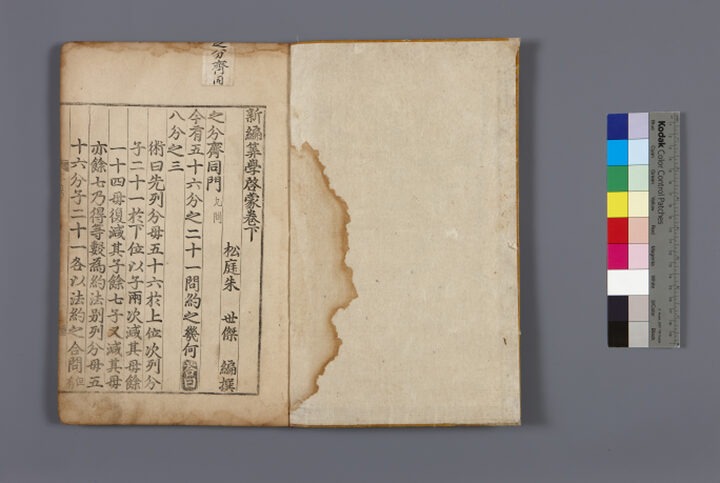 新編筭學啓蒙卷下
松庭朱 世傑 編撰
之分齊同門 九問
今有五十六分之二十一問約之幾何 荅曰
八分之三
術曰先列分母五十六於上位次列分
子二十一於下位以子兩次減其母餘
一十四母復減其子餘七子又減其母
亦餘七乃得等數為約法別列分母五
十六分子二十一各以法約之合問
之分齊同
Kodak Color Control Patches
Blue
Cyan
Green
Yellow
Red
Magenta
White
3/Color
Black